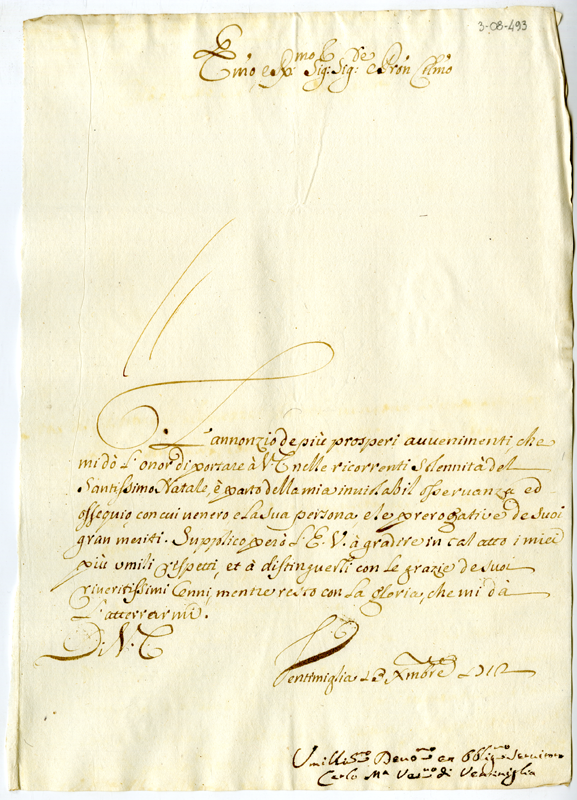 3-08-493
Emo, e Rx: mo Sig: Sig: e Pron Colmo
L'annonzio de più prosperi avvenimenti che
mi dò l'onor di portare à V. E. nelle ricorrenti Solennità del
Santissimo Natale, è parto della mia inviolabil osservanza, ed
ossequio con cui venero e la Sua persona, e le prerogative de suoi
gran meriti. Supplico però l'E. V. à gradire in tal atto i miei
più umili rispetti, et à distinguerli con le grazie de suoi
riveritissimi Cenni, mentre resto con la gloria, che mi dà
l'atterrarmi.
Di V. E.
Ventimiglia 13 Xmbre
Umilliss:mo Devo:mo ed Obblig:mo Servitore
Carlo Ma Vesc:vo di Ventimiglia